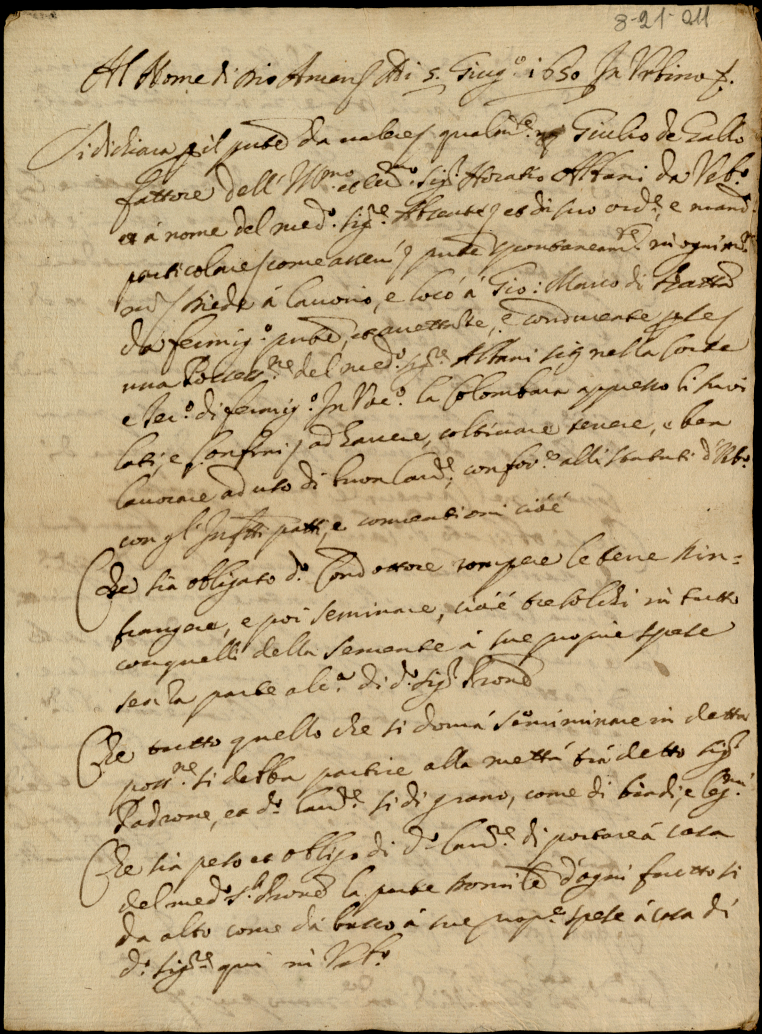 8-21-011
Al Nome di Dio Amen Adi 5. Giug.o 1650 In Urbino
Si dichiara p il pnte da valere qualm.te Giulio de Gallo
fattore dell' Ill.mo et Ecc.mo Sig.r Horatio Albani da Urb.o
et à nome del med.o Sig.re Absente et di suo ord.e, e mand.
particolare come assen pnte spontaneam.te in ogni
diede à lavorio, e locò à Gio: Marco di
da fermig.o pnte, et accettante, e conducente p se
una Posses.ne del med.o Sig.re Albani sig nella Corte
e Ter.o di fermig.o In Voc.o la Colombara appresso li suoi
lati, e Confini ad havere, coltivare tenere, e ben
lavorare ad uso di buon Lav.re confor.e alli statuti d'Urb.o
con gl' Infrti patti, e conventioni cioè
Che sia obligato d.o Conduttore rompere le terre rin=
frangere, e poi seminare, cioè tresolchi in tutto
con quelli della semente à sue proprie spese
senza parte alc.a di d.o Sig.r Prone
Che tutto quello che si dovrà seminare in detta
poss.ne si debba partire alla mettà trà detto Sig.r
Padrone, et d.o Lav.re si di grano, come di biadi, e leg.mi
Che sia peso et obligo di d.o Lav.re di portare à casa
del med.o S.r Prone la parte d'ogni frutto si
da alto come da basso à sue prop.e spese à casa di
d.o Sig.re qui in Urb.o